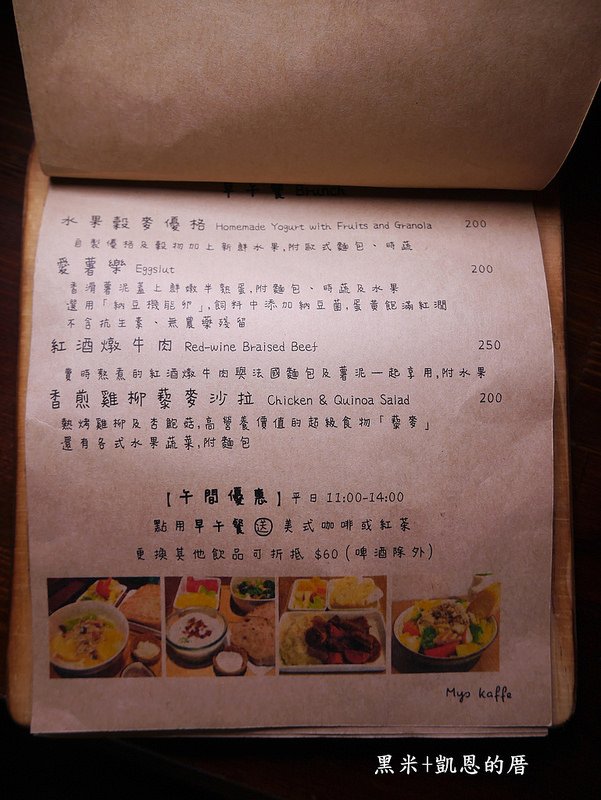 早午餐 Brunch
水果穀麥優格 Homemade Yogurt with Fruits and Granola 200
自製優格及穀物加上新鮮水果,附歐式麵包、時蔬
愛薯樂 Eggslut 200
香滑薯泥蓋上鮮嫩半熟蛋,附麵包、時蔬及水果
選用「納豆機能卵」,飼料中添加納豆菌,蛋黃飽滿紅潤
不含抗生素、無農藥殘留
紅酒燉牛肉 Red-wine Braised Beef 250
費時熬煮的紅酒燉牛肉與法國麵包及薯泥一起享用,附水果
香煎雞柳藜麥沙拉 Chicken & Quinoa Salad 200
熱烤雞柳及杏鮑菇,高營養價值的超級食物「藜麥」
還有各式水果蔬菜,附麵包
【午間優惠】平日 11:00-14:00
點用早午餐 送 美式咖啡或紅茶
更換其他飲品可折抵 $60 (啤酒除外)
Myo kaffe
黑米+凱恩的厝